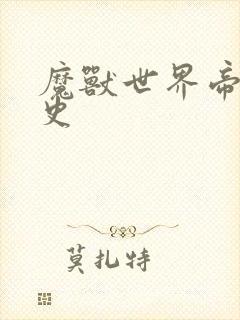 魔獸世界帝
史
莫扎特